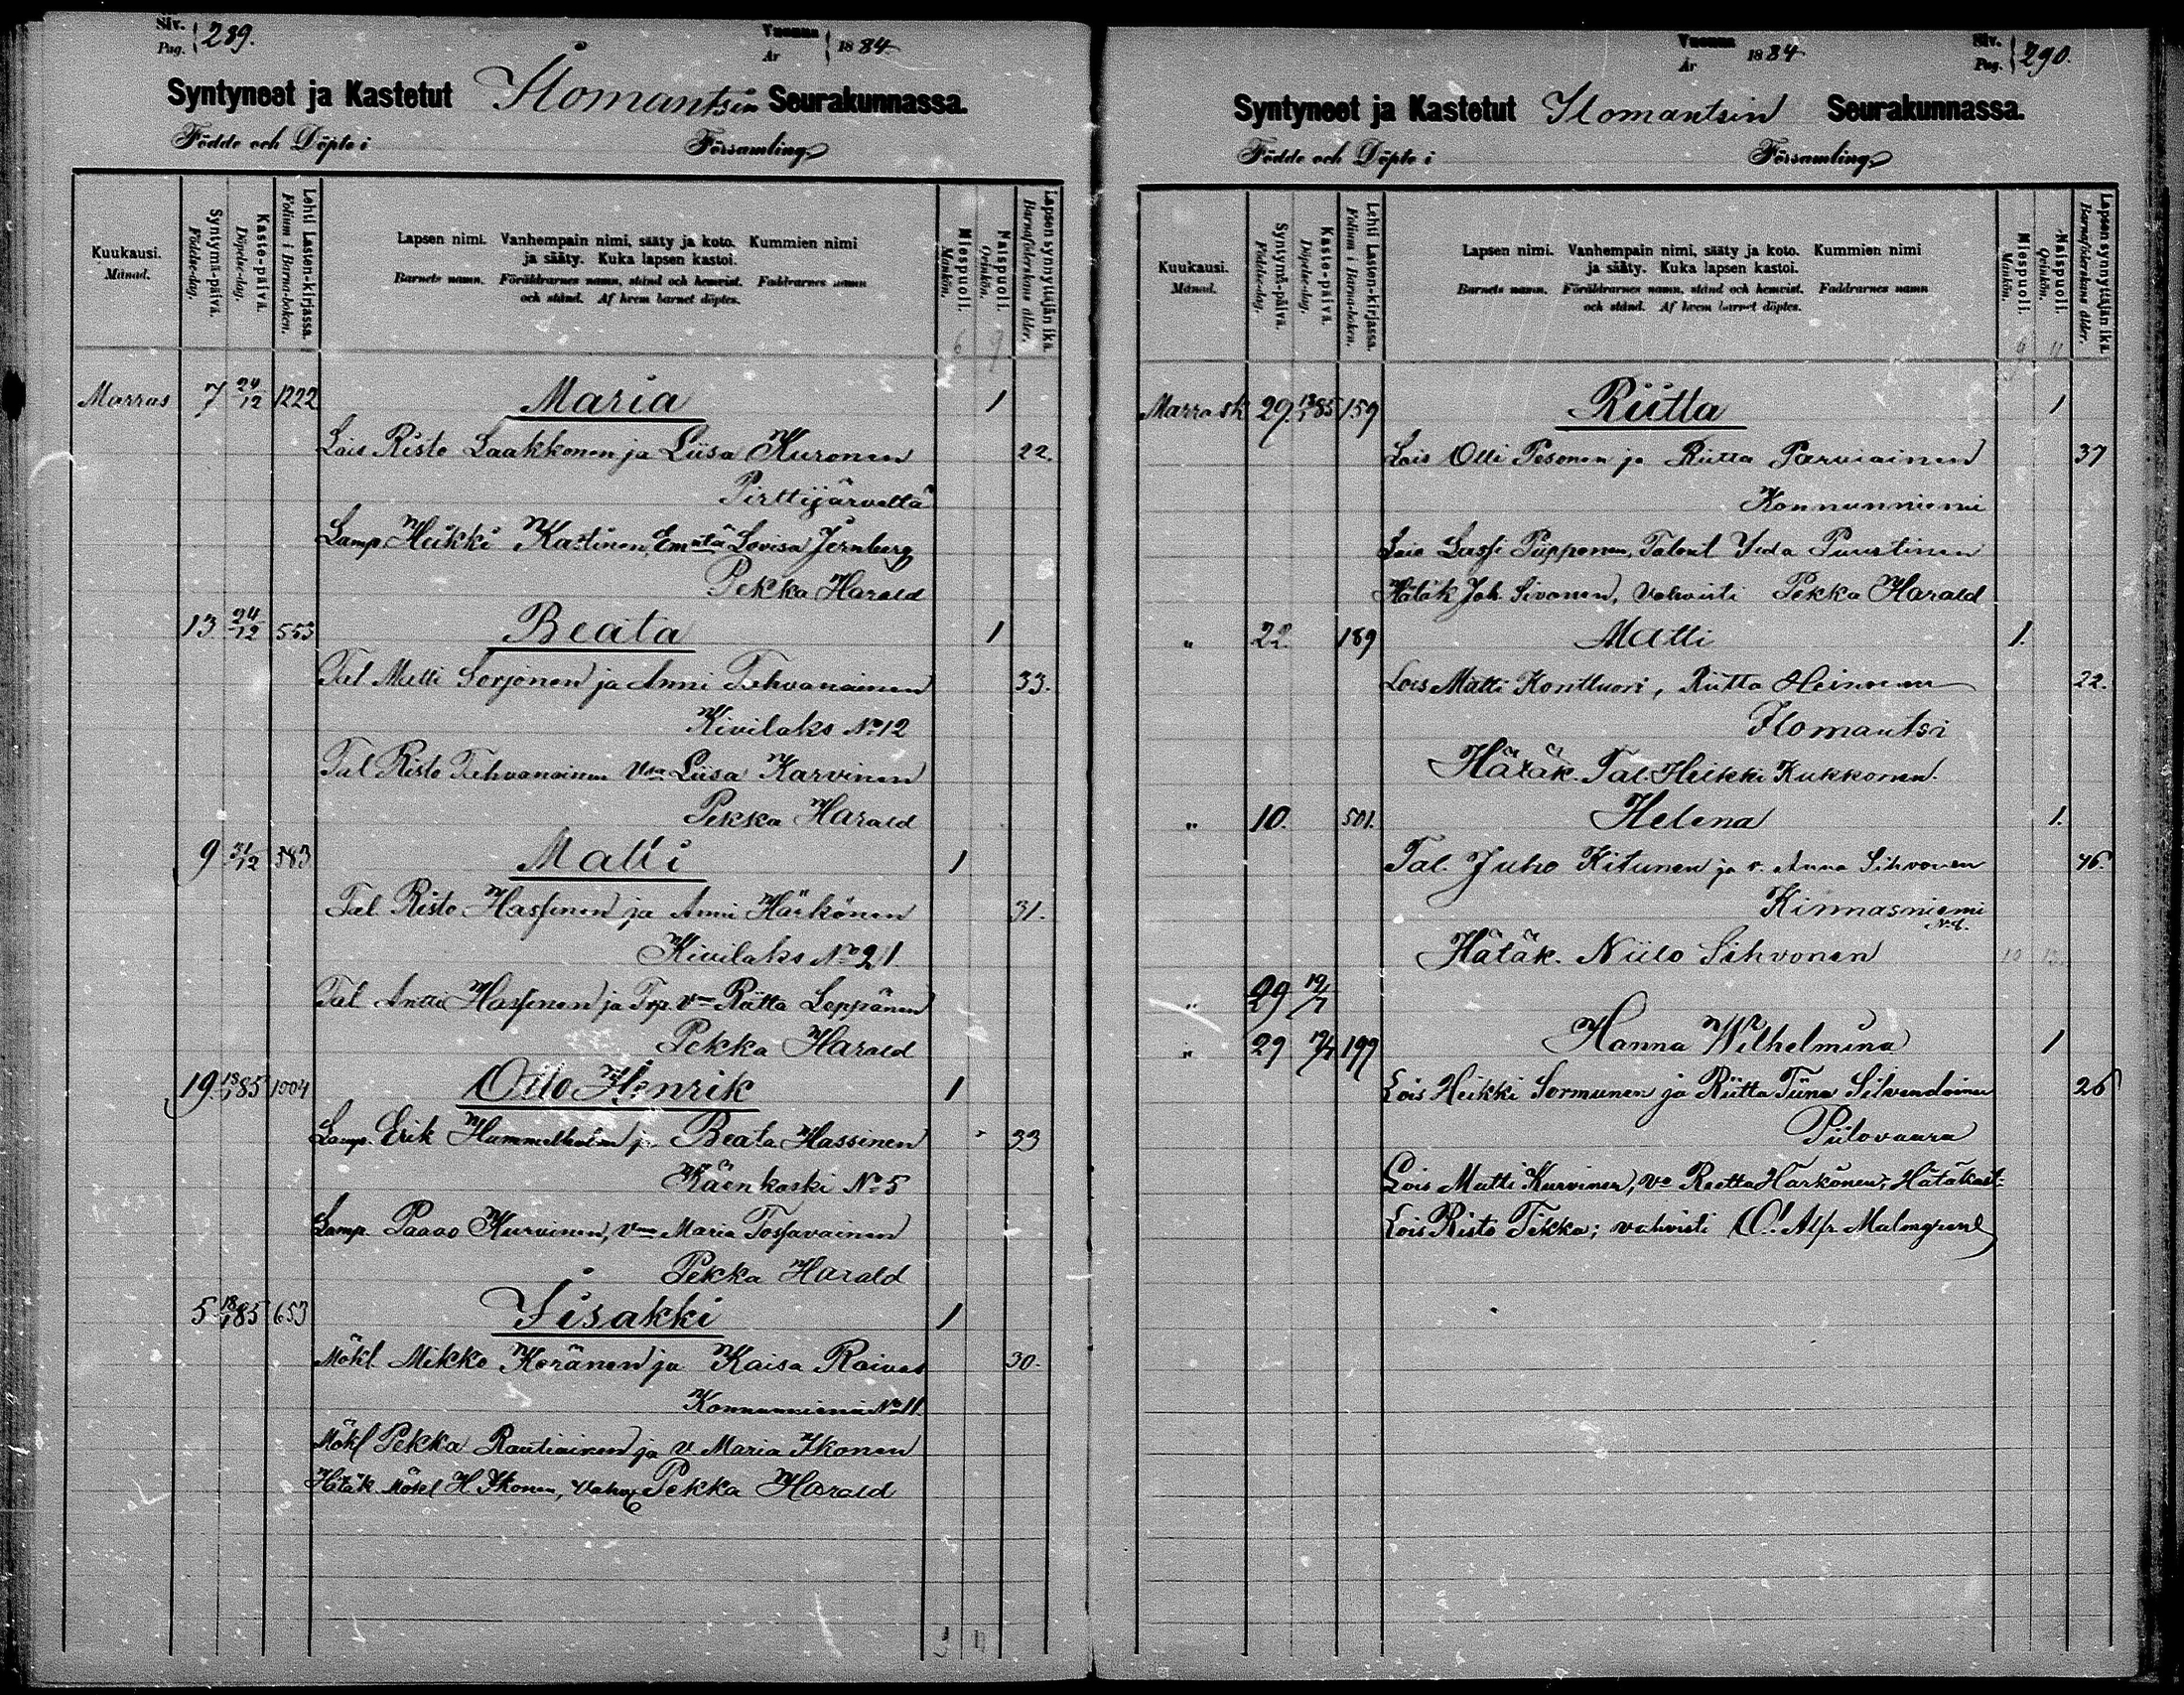 Siv.
Pag. 289.
Vuonna
År 1884
Syntyneet ja Kastetut Ilomantsin Seurakunnassa.
Födde och Döpte i Församling
Kuukausi.
Månad.
Syntymä-päivä.
Födelse-dag.
Kaste-päivä.
Döpelse-dag.
Lehti Lasten-kirjassa.
Folium i Barna-boken.
Lapsen nimi. Vanhempain nimi, sääty ja koto. Kummien nimi
ja sääty. Kuka lapsen kastoi.
Barnets namn. Föräldrarnes namn, stånd och hemvist. Faddrarnes namn
och stånd. Af hvem barnet döptes.
Miespuoli.
Mankön.
Naispuoli.
Qvinkön.
Lapsen synnyttäjän ikä.
Barnaföderskans ålder.
6 9
Marras 7 24/12 1222 Maria 1
Lois Risto Laakkonen ja Liisa Kuronen 22.
Pirttijärveltä
Lamp. Heikki Kastinen, Emntä Lovisa Jernberg
Pekka Harald
13 24/12 553 Beata 1
Tal Matti Sorjonen ja Anni Tahvanainen 33.
Kivilaks No 12
Tal Risto Tahvanainen Vmo Liisa Karvinen
Pekka Harald
9 31/12 583 Matti 1
Tal Risto Hassinen ja Anni Härkönen 31.
Kivilaks No 21.
Tal Antti Hassinen ja Trp. vmo Riitta Leppänen
Pekka Harald
19. 13/1 85 1004 Otto Henrik 1
Lamp. Erik Hammelholm ja Beata Hassinen 33
Käenkoski No 5
Lamp. Paavo Kurvinen, Vmo Maria Tossavainen
Pekka Harald
5 18/1 85 653 Iisakki 1
Mökl. Mikko Koränen ja Kaisa Raivas 30.
Konnunniemi No 11.
Mökl Pekka Rautiainen ja v Maria Ikonen
Hätäk Mökl H. Ikonen, Vahv. Pekka Harald
Vuonna
År 1884
Siv.
Pag. 290.
Syntyneet ja Kastetut Ilomantsin Seurakunnassa.
Födde och Döpte i Församling
Kuukausi.
Månad.
Syntymä-päivä.
Födelse-dag.
Kaste-päivä.
Döpelse-dag.
Lehti Lasten-kirjassa.
Folium i Barna-boken.
Lapsen nimi. Vanhempain nimi, sääty ja koto. Kummien nimi
ja sääty. Kuka lapsen kastoi.
Barnets namn. Föräldrarnes namn, stånd och hemvist. Faddrarnes namn
och stånd. Af hvem barnet döptes.
Miespuoli.
Mankön.
Naispuoli.
Qvinkön.
Lapsen synnyttäjän ikä.
Barnaföderskans ålder.
9 11
Marrask 29. 13/1 85 159 Riitta 1
Lois Olli Pesonen ja Riitta Parviainen 37
Konnunniemi
Lois Lassi Piipponen, Talout Iida Puustinen
Hätäk Joh. Sivonen, Vahvisti Pekka Harald
" 22. 189 Matti 1.
Lois Matti Konttuori, Riitta Heinonen 22.
Ilomantsi
Hätäk. Tal. Heikki Kukkonen.
" 10. 501. Helena 1.
Tal. Juho Kitunen ja v. Anna Sihvonen 46.
Kinnasniemi
Hätäk. Niilo Sihvonen
" 29 19/7
" 29 19/7 199 Hanna Wilhelmina 1
Lois Heikki Sormunen ja Riitta Tiina Silvendoinen 26
Piilovaara
Lois Matti Kurvinen, vo Reetta Härkönen; Hätäkast:
Lois Risto Tikka; vahvisti O. Alfr. Malmgren